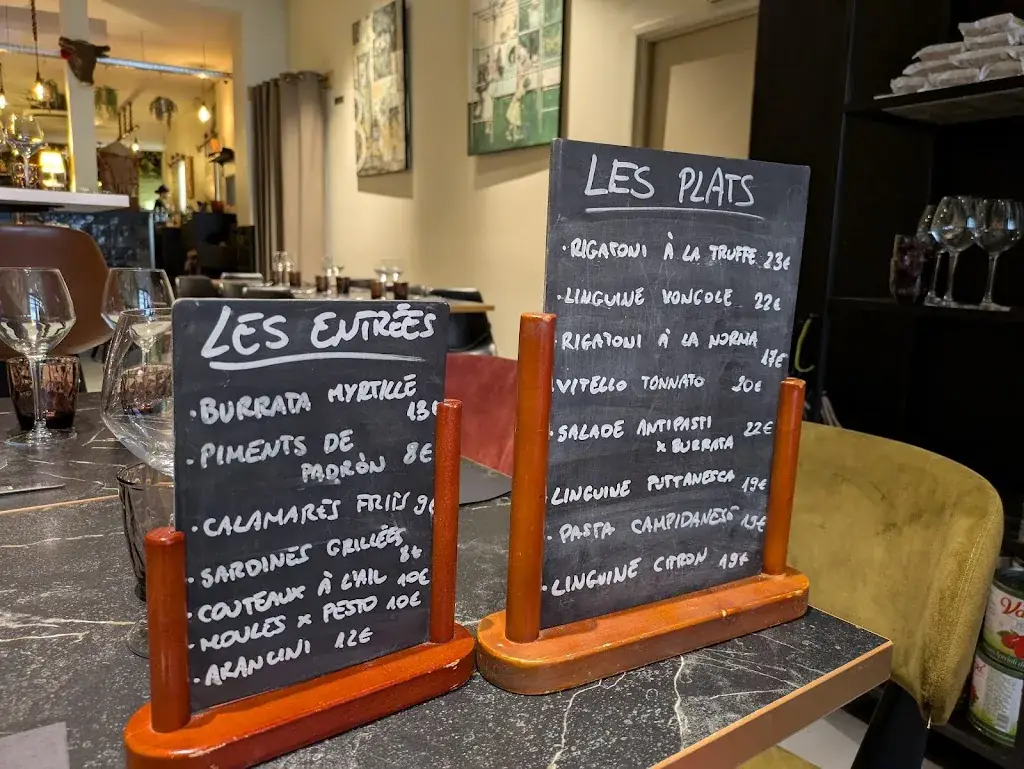 LES ENTRÉES
· BURRATA MYRTILLE
13€
· PIMENTS DE
PADRÒN 8€
· CALAMARES FRITS 9€
· SARDINES GRILLÉES
8€
· COUTEAUX À L'AIL 10€
· MOULES x PESTO 10€
· ARANCINI 12€
LES PLATS
· RIGATONI À LA TRUFFE 23€
· LINGUINE VONGOLE 22€
· RIGATONI À LA NORMA
17€
· VITELLO TONNATO 20€
· SALADE ANTIPASTI 22€
x BURRATA
· LINGUINE PUTTANESCA 19€
· PASTA CAMPIDANESÒ 19€
· LINGUINE CITRON 19€